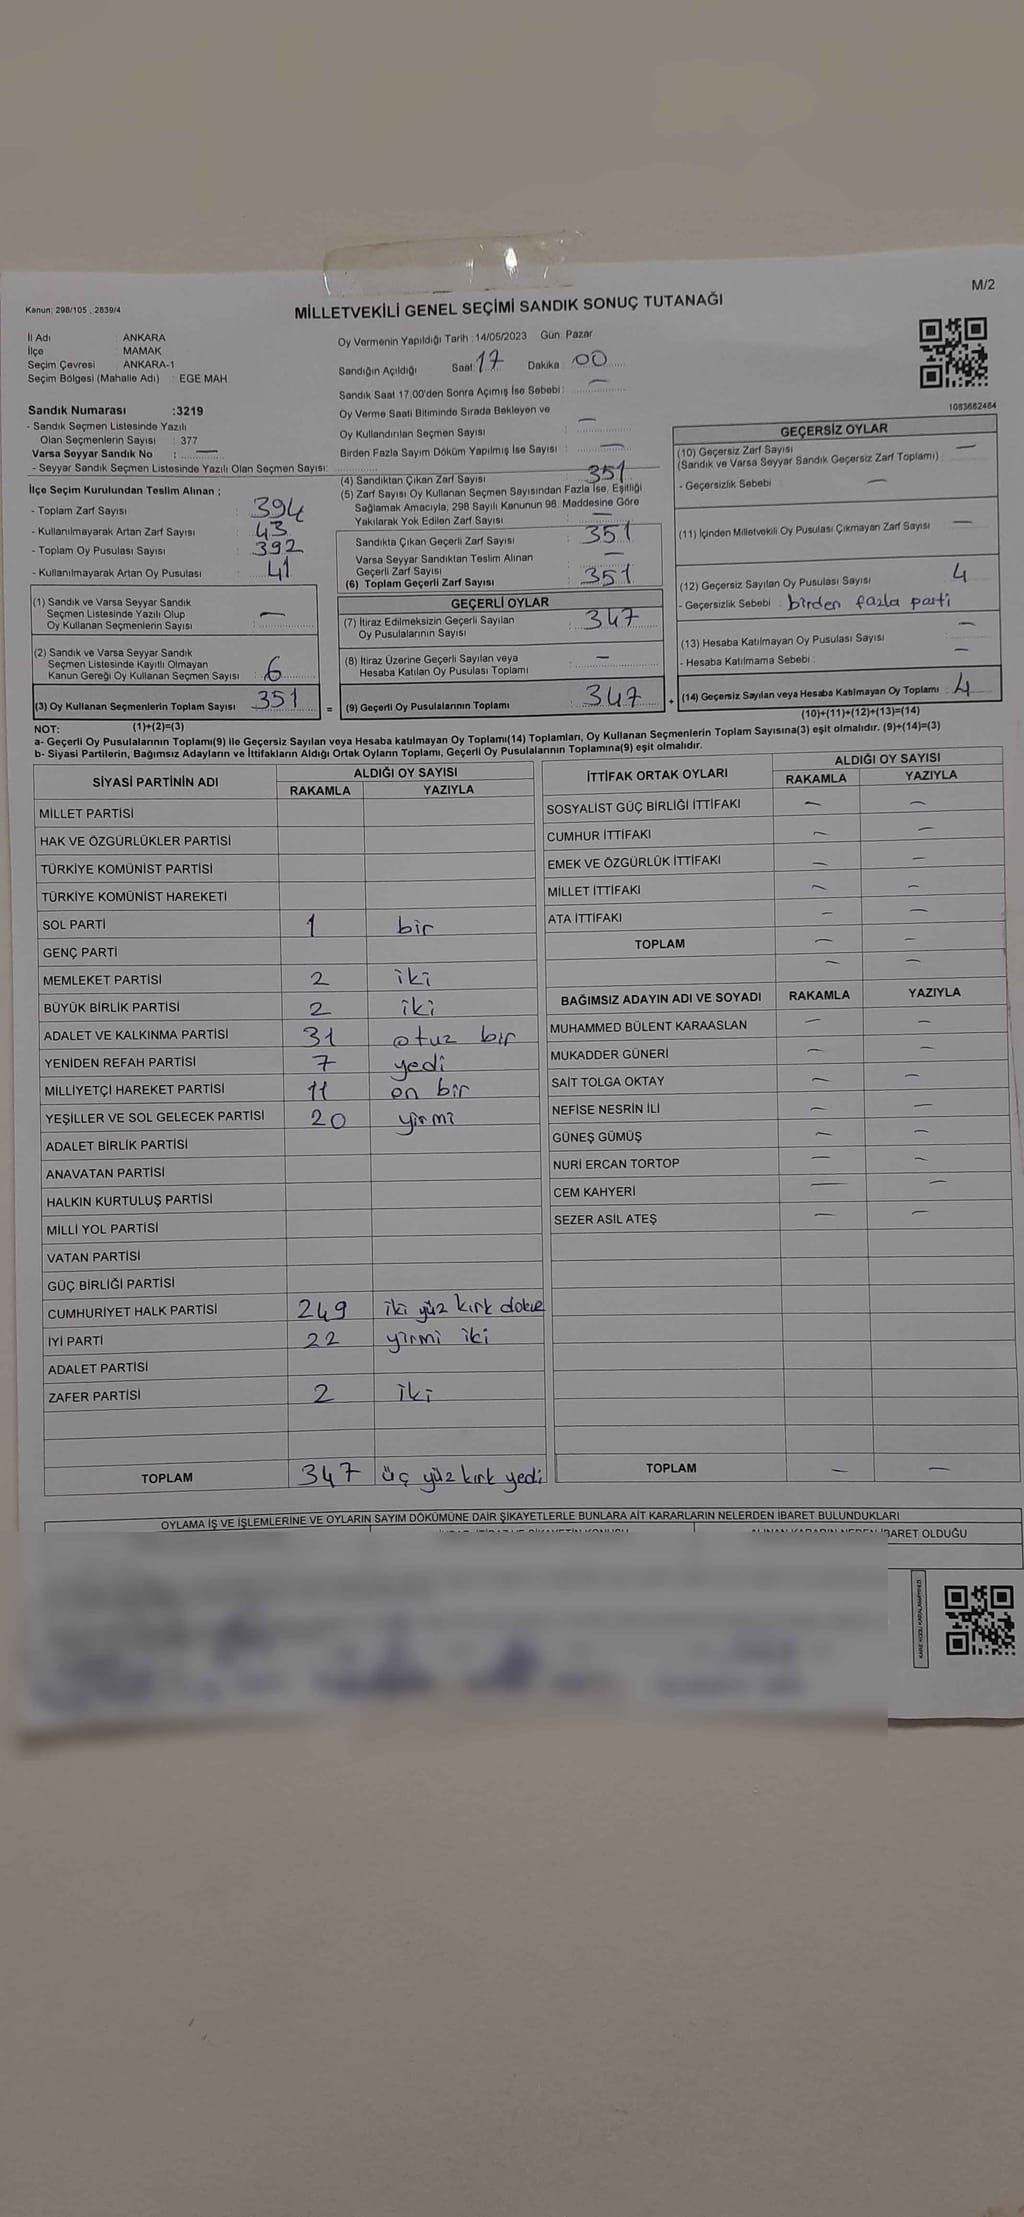 M/2
Kanun; 298/105 , 2839/4
MİLLETVEKİLİ GENEL SEÇİMİ SANDIK SONUÇ TUTANAĞI
İl Adı : ANKARA
İlçe MAMAK
Seçim Çevresi : ANKARA-1
Seçim Bölgesi (Mahalle Adı) : EGE MAH.
Oy Vermenin Yapıldığı Tarih : 14/05/2023 Gün: Pazar
Sandığın Açıldığı Saat: 17 Dakika: 00
Sandık Saat 17.00'den Sonra Açımış İse Sebebi: —
Oy Verme Saati Bitiminde Sırada Bekleyen ve
Oy Kullandırılan Seçmen Sayısı : —
Birden Fazla Sayım Döküm Yapılmış İse Sayısı : —
1083682484
Sandık Numarası :3219
- Sandık Seçmen Listesinde Yazılı
Olan Seçmenlerin Sayısı : 377
Varsa Seyyar Sandık No : —
- Seyyar Sandık Seçmen Listesinde Yazılı Olan Seçmen Sayısı:
İlçe Seçim Kurulundan Teslim Alınan ;
- Toplam Zarf Sayısı : 394
- Kullanılmayarak Artan Zarf Sayısı : 43
- Toplam Oy Pusulası Sayısı : 392
- Kullanılmayarak Artan Oy Pusulası : 41
(1) Sandık ve Varsa Seyyar Sandık
Seçmen Listesinde Yazılı Olup
Oy Kullanan Seçmenlerin Sayısı : —
(2) Sandık ve Varsa Seyyar Sandık
Seçmen Listesinde Kayıtlı Olmayan
Kanun Gereği Oy Kullanan Seçmen Sayısı : 6
(3) Oy Kullanan Seçmenlerin Toplam Sayısı 351 =
(4) Sandıktan Çıkan Zarf Sayısı : 351
(5) Zarf Sayısı Oy Kullanan Seçmen Sayısından Fazla İse, Eşitliği
Sağlamak Amacıyla, 298 Sayılı Kanunun 98. Maddesine Göre
Yakılarak Yok Edilen Zarf Sayısı : —
Sandıkta Çıkan Geçerli Zarf Sayısı : 351
Varsa Seyyar Sandıktan Teslim Alınan
Geçerli Zarf Sayısı : —
(6) Toplam Geçerli Zarf Sayısı : 351
GEÇERLİ OYLAR
(7) İtiraz Edilmeksizin Geçerli Sayılan
Oy Pusulalarının Sayısı : 347
(8) İtiraz Üzerine Geçerli Sayılan veya
Hesaba Katılan Oy Pusulası Toplamı : —
(9) Geçerli Oy Pusulalarının Toplamı : 347 +
GEÇERSİZ OYLAR
(10) Geçersiz Zarf Sayısı —
(Sandık ve Varsa Seyyar Sandık Geçersiz Zarf Toplamı) :
- Geçersizlik Sebebi : —
(11) İçinden Milletvekili Oy Pusulası Çıkmayan Zarf Sayısı : —
(12) Geçersiz Sayılan Oy Pusulası Sayısı : 4
- Geçersizlik Sebebi : birden fazla parti
(13) Hesaba Katılmayan Oy Pusulası Sayısı : —
- Hesaba Katılmama Sebebi : —
(14) Geçersiz Sayılan veya Hesaba Katılmayan Oy Toplamı : 4
NOT: (1)+(2)=(3) (10)+(11)+(12)+(13)=(14)
a- Geçerli Oy Pusulalarının Toplamı(9) ile Geçersiz Sayılan veya Hesaba katılmayan Oy Toplamı(14) Toplamları, Oy Kullanan Seçmenlerin Toplam Sayısına(3) eşit olmalıdır. (9)+(14)=(3)
b- Siyasi Partilerin, Bağımsız Adayların ve İttifakların Aldığı Ortak Oyların Toplamı, Geçerli Oy Pusulalarının Toplamına(9) eşit olmalıdır.
SİYASİ PARTİNİN ADI ALDIĞI OY SAYISI
RAKAMLA YAZIYLA
MİLLET PARTİSİ
HAK VE ÖZGÜRLÜKLER PARTİSİ
TÜRKİYE KOMÜNİST PARTİSİ
TÜRKİYE KOMÜNİST HAREKETİ
SOL PARTİ 1 bir
GENÇ PARTİ
MEMLEKET PARTİSİ 2 iki
BÜYÜK BİRLİK PARTİSİ 2 iki
ADALET VE KALKINMA PARTİSİ 31 otuz bir
YENİDEN REFAH PARTİSİ 7 yedi
MİLLİYETÇİ HAREKET PARTİSİ 11 on bir
YEŞİLLER VE SOL GELECEK PARTİSİ 20 yirmi
ADALET BİRLİK PARTİSİ
ANAVATAN PARTİSİ
HALKIN KURTULUŞ PARTİSİ
MİLLİ YOL PARTİSİ
VATAN PARTİSİ
GÜÇ BİRLİĞİ PARTİSİ
CUMHURİYET HALK PARTİSİ 249 iki yüz kırk dokuz
İYİ PARTİ 22 yirmi iki
ADALET PARTİSİ
ZAFER PARTİSİ 2 iki
TOPLAM 347 üç yüz kırk yedi
İTTİFAK ORTAK OYLARI ALDIĞI OY SAYISI
RAKAMLA YAZIYLA
SOSYALİST GÜÇ BİRLİĞİ İTTİFAKI — —
CUMHUR İTTİFAKI — —
EMEK VE ÖZGÜRLÜK İTTİFAKI — —
MİLLET İTTİFAKI — —
ATA İTTİFAKI — —
TOPLAM — —
— —
BAĞIMSIZ ADAYIN ADI VE SOYADI RAKAMLA YAZIYLA
MUHAMMED BÜLENT KARAASLAN — —
MUKADDER GÜNERİ — —
SAİT TOLGA OKTAY — —
NEFİSE NESRİN İLİ — —
GÜNEŞ GÜMÜŞ — —
NURİ ERCAN TORTOP — —
CEM KAHYERİ — —
SEZER ASİL ATEŞ — —
TOPLAM — —
OYLAMA İŞ VE İŞLEMLERİNE VE OYLARIN SAYIM DÖKÜMÜNE DAİR ŞİKAYETLERLE BUNLARA AİT KARARLARIN NELERDEN İBARET BULUNDUKLARI
İBARET OLDUĞU